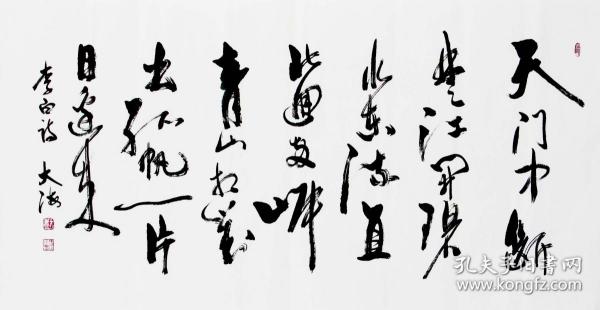 天门中断
楚江開碧
水東流直
此迴两岸
青山相對
出孤帆一片
日邊来
李白诗 大海
孔夫子旧书网
www.kongfz.com